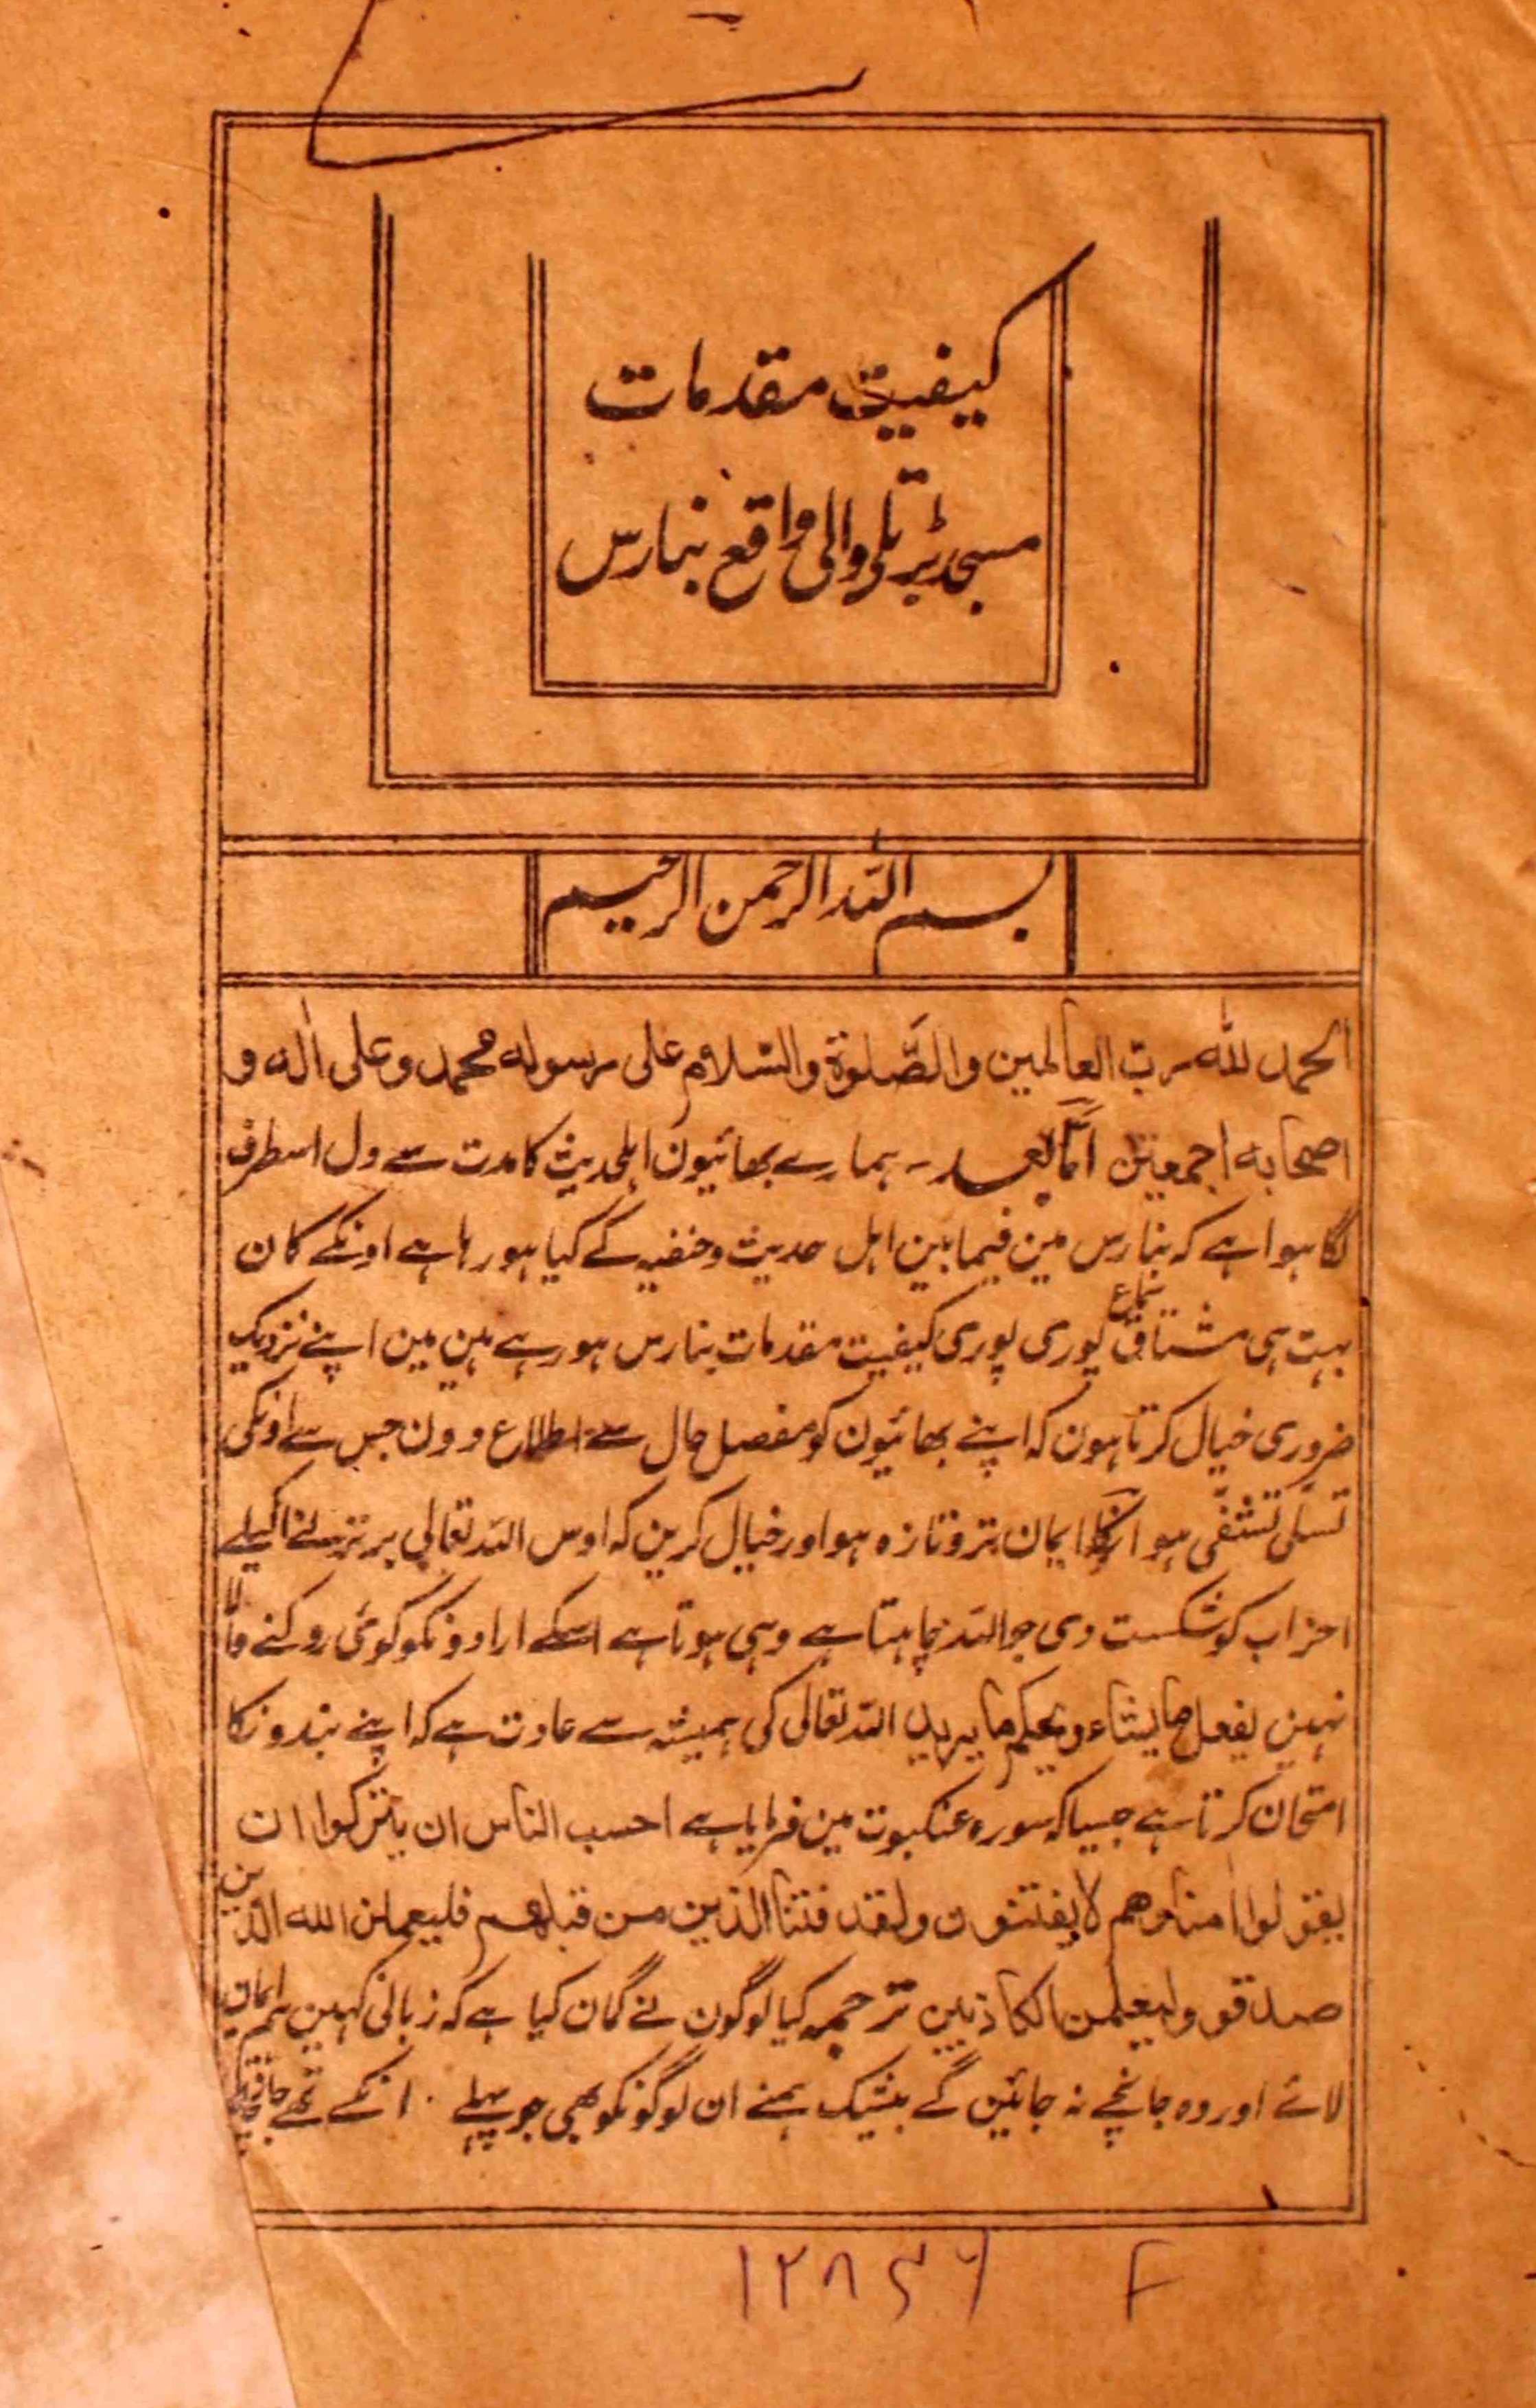 کیفیت مقدمات
مسجد ٹیڑہ تلی والی واقع بنارس
بسم اللہ الرحمن الرحیم
الحمد للہ رب العالمین والصَّلٰوۃ والسّلام علی رسولہ محمد وعلی اٰلہ و
اصحابہ اجمعین امّا بعد ۔ ہمارے بھائیون اہلحدیث کا مدت سے دل اسطرف
لگا ہوا ہے کہ بنارس مین فیما بین اہل حدیث وحنفیہ کے کیا ہو رہا ہے اونکے کان
بہت ہی مشتاق سماع پوری پوری کیفیت مقدمات بنارس ہو رہے ہین مین اپنے نزدیک
ضروری خیال کرتا ہون کہ اپنے بھائیون کو مفصل حال سے اطلاع دون جس سے اونکی
تسلّی تشفّی ہو انکا ایمان تر وتازہ ہو اور خیال کرین کہ اوس اللہ تعالی برتر نے اکیلے
احزاب کو شکست دی جو اللہ چاہتا ہے وہی ہوتا ہے اسکے ارادونکو کوئی روکنے والا
نہین یفعل ما یشاء ویحکم ما یرید اللہ تعالی کی ہمیشہ سے عادت ہے کہ اپنے بندونکا
امتحان کرتا ہے جیسا کہ سورہ عنکبوت مین فرمایا ہے احسب الناس ان یترکوا ان
یقولوا اٰمنا وهم لا یفتنون ولقد فتنا الذین من قبلهم فلیعلمن اللہ الذین
صدقو ولیعلمن الکاذبین ترجمہ کیا لوگون نے گمان کیا ہے کہ زبانی کہین ہم ایمان
لائے اور وہ جانچے نہ جائین گے بیشک ہمنے ان لوگونکو بھی جو پہلے انکے تھے
۱۲۸۴۶